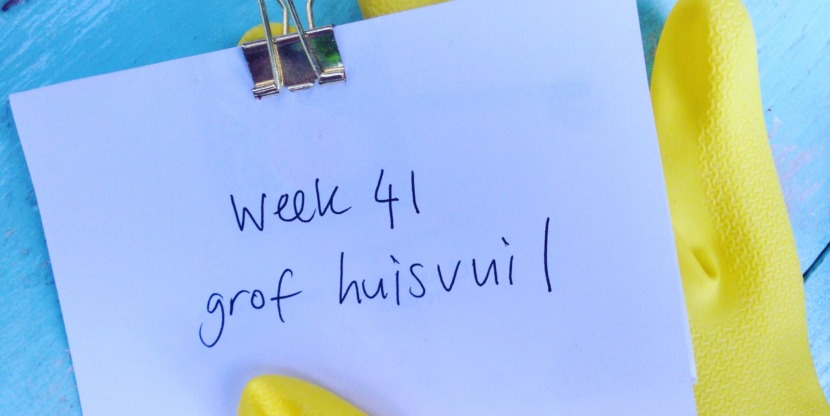 Week 41
grof huisvuil